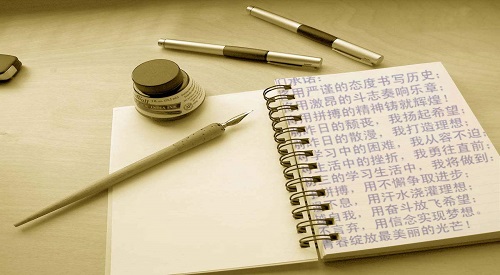 承话:
用严谨的态度书写历史;
用激昂的斗志奏响乐章;
用拼搏的精神铸就辉煌!
昨日的颓丧,我扬起希望;
日的散漫,我打造理想;
学习中的困难,我从容不迫;
生活中的挫折,我勇往直前;
的学习生活中,我将做到:
搏,用不懈争取进步;
不息,用汗水浇灌理想;
自我,用奋斗放飞希望;
言弃,用信念实现梦想。
青春绽放最美丽的光芒!